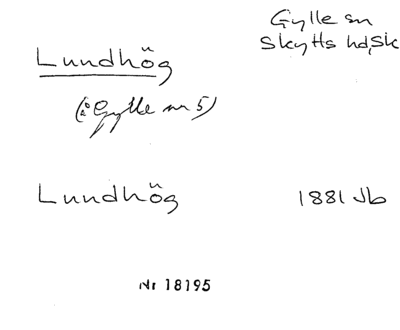 Gylle sn
Skytts hd, Sk
Lundhög
(å Gylle nr 5)
Lundhög 1881 Jb
Nr 18195